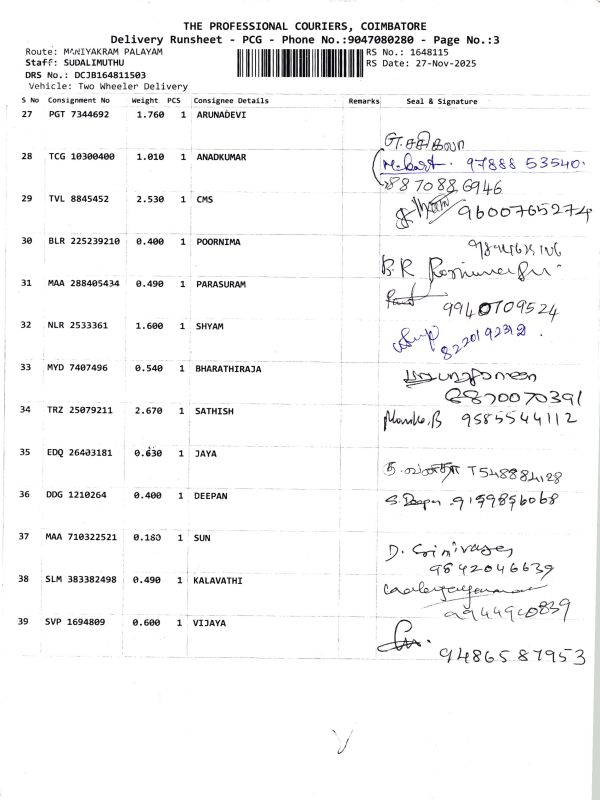 THE PROFESSIONAL COURIERS, COIMBATORE
Delivery Runsheet - PCG - Phone No.:9047080280 - Page No.:3
Route: MANIYAKRAM PALAYAM RS No.: 1648115
Staff: SUDALIMUTHU RS Date: 27-Nov-2025
DRS No.: DCJB164811503
Vehicle: Two Wheeler Delivery
S No Consignment No Weight PCS Consignee Details Remarks Seal & Signature
27 PGT 7344692 1.760 1 ARUNADEVI
எ.சசிகலா
28 TCG 10300400 1.010 1 ANADKUMAR 97888 53540.
8870886946
29 TVL 8845452 2.530 1 CMS 9600765274
30 BLR 225239210 0.400 1 POORNIMA
B.R
31 MAA 288405434 0.490 1 PARASURAM
9940709524
32 NLR 2533361 1.600 1 SHYAM
8220192312.
33 MYD 7407496 0.540 1 BHARATHIRAJA
8870070391
34 TRZ 25079211 2.670 1 SATHISH 9585544112
35 EDQ 26403181 0.630 1 JAYA
36 DDG 1210264 0.400 1 DEEPAN S.Deepan 9159856068
37 MAA 710322521 0.180 1 SUN
D. Srinivasan
9842046639
38 SLM 383382498 0.490 1 KALAVATHI
39 SVP 1694809 0.600 1 VIJAYA
9486587953